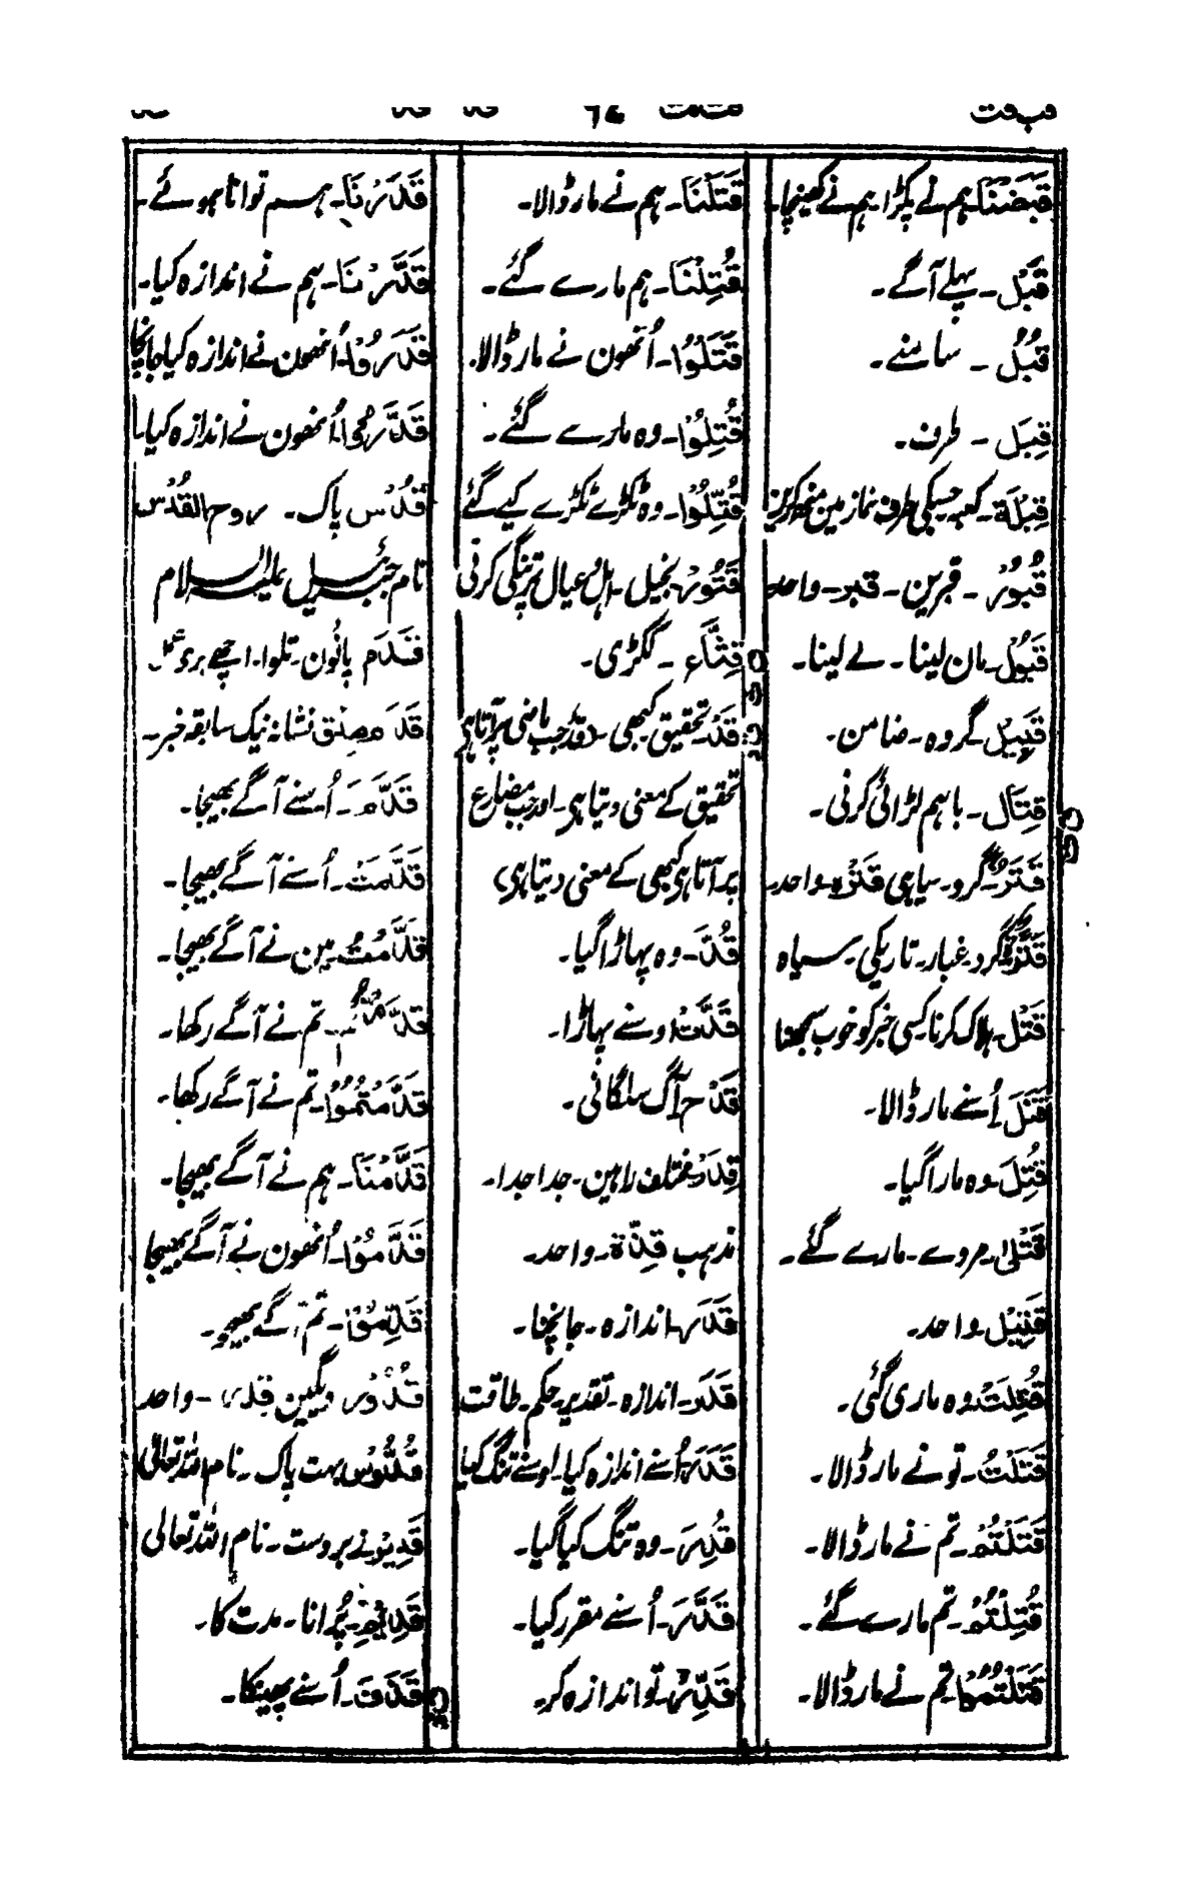 قب قت
قت قث ٦٤ قد
قد قد
قَبَضْنَا۔ ہم نے پکڑا۔ ہم نے کھینچا۔
قَبْل۔ پہلے آگے۔
قُبُلٌ ۔ سامنے۔
قِبَل ۔ طرف۔
قِبْلَة۔ کعبہ جسکی طرف نماز مین منھ کرین
قُبُوْر ۔ قبرین ۔ قبر۔ واحد
قَبُوْل۔ مان لینا ۔ لے لینا۔
قَبِیْل گروہ ۔ ضامن۔
قِتَال۔ باہم لڑائی کرنی۔
قَتَرٌ۔ گرد۔ سیاہی قَتَرَہ۔ واحد۔
قَتَرَةٌ گرد۔ غبار۔ تاریکی۔ سیاہ
قَتْل۔ ہلاک کرنا کسی خبر کو خوب سمجھنا
قَتَلَ اُسنے مار ڈالا۔
قُتِلَ۔ وہ مارا گیا۔
قَتْلیٰ۔ مروے۔ مارے گئے۔
قَتِیْل۔ واحد۔
قُتِلَتْ وہ ماری گئی۔
قَتَلْتَ۔ تو نے مار ڈالا۔
قَتَلْتُمْ۔ تم نے مار ڈالا۔
قُتِلْتُمْ۔ تم مارے گئے۔
قَتَلْتُمُوْا تم نے مار ڈالا۔
قَتَلْنَا۔ ہم نے مار ڈالا۔
قُتِلْنَا۔ ہم مارے گئے۔
قَتَلُوْا۔ اُنھون نے مار ڈالا۔
قُتِلُوْا۔ وہ مارے گئے۔
قُتِّلُوْا۔ وہ ٹکڑے ٹکڑے کیے گئے
قَتُوْر بخیل۔ اہل و عیال پر تنگی کرنی
قِثَّاء ۔ ککڑی۔
قَدْ۔ تحقیق کبھی۔ (قد جب ماضی پر آتا ہی
تحقیق کے معنی دیتا ہی۔ اور جب مضارع
پر آتا ہی کبھی کے معنی دیتا ہی)
قُدَّ۔ وہ پھاڑا گیا۔
قَدَّتْ اوسنے پھاڑا۔
قَدْح آگ سلگانی۔
قِدَدْ مختلف راہین۔ جدا جدا۔
مذہب قِدَّة۔ واحد۔
قَدَر۔ اندازہ۔ جانچنا۔
قَدَر۔ اندازہ۔ تقدیر۔ حکم۔ طاقت
قَدَرَ اُسنے اندازہ کیا۔ اوسنے تنگ کیا
قُدِرَ۔ وہ تنگ کیا گیا۔
قَدَّرَ۔ اُسنے مقرر کیا۔
قَدِّرْ۔ تو اندازہ کر۔
قَدَرْنَا۔ ہم توانا ہوئے۔
قَدَّرْنَا۔ ہم نے اندازہ کیا۔
قَدَرُوْا۔ اُنھون نے اندازہ کیا جانچا
قَدَّرُوْا۔ اُنھون نے اندازہ کیا۔
قُدُس پاک۔ روح القُدُس
نام جبرئیل علیہ السلام
قَدَم پانُون۔ تلوا۔ اچھے برے عمل
قَدَمَ صِدْق نشانہ نیک سابقہ خبر۔
قَدَّمَ۔ اُسنے آگے بھیجا۔
قَدَّمَتْ۔ اُسنے آگے بھیجا۔
قَدَّمْتُ مین نے آگے بھیجا۔
قَدَّمْتُمْ۔ تم نے آگے رکھا۔
قَدَّمْتُمُوْا۔ تم نے آگے رکھا۔
قَدَّمْنَا۔ ہم نے آگے بھیجا۔
قَدَّمُوْا۔ اُنھون نے آگے بھیجا
قَدِّمُوْا۔ تم آگے بھیجو۔
قُدُوْر دیگین قِدْر ۔ واحد
قُدُّوْس بہت پاک ۔ نام اللہ تعالی
قَدِیْر زبردست۔ نام اللہ تعالی
قَدِیْم۔ پُرانا۔ مدت کا۔
قَذَفَ۔ اُسنے پھینکا۔